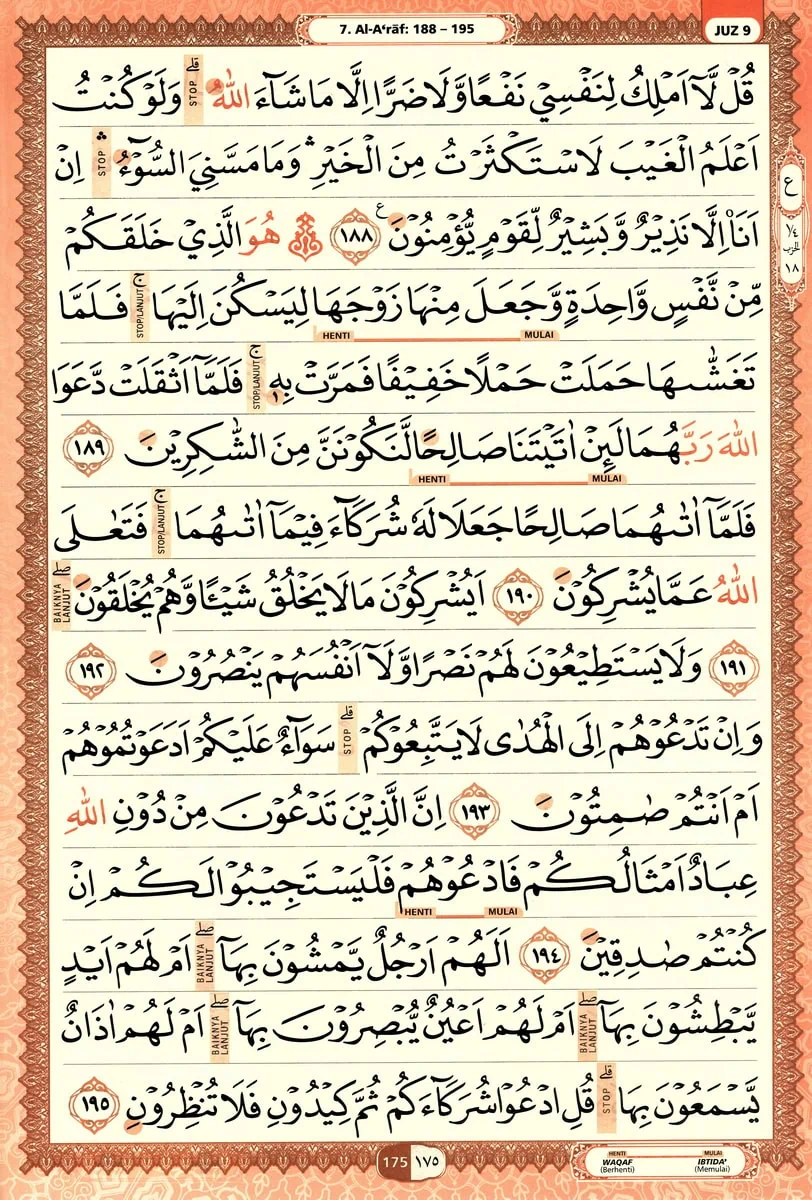 7. Al-A‘rāf: 188 – 195
JUZ 9
قُلْ لَّآ اَمْلِكُ لِنَفْسِيْ نَفْعًا وَّلَا ضَرًّا اِلَّا مَا شَاۤءَ اللّٰهُ ۗ STOP وَلَوْ كُنْتُ
اَعْلَمُ الْغَيْبَ لَاسْتَكْثَرْتُ مِنَ الْخَيْرِۛ وَمَا مَسَّنِيَ السُّوْۤءُ ۛ STOP اِنْ
اَنَا۠ اِلَّا نَذِيْرٌ وَّبَشِيْرٌ لِّقَوْمٍ يُّؤْمِنُوْنَ ࣖ ١٨٨ هُوَ الَّذِيْ خَلَقَكُمْ
ع
١/٤
الحزب
١٨
مِّنْ نَّفْسٍ وَّاحِدَةٍ وَّجَعَلَ مِنْهَا زَوْجَهَا لِيَسْكُنَ اِلَيْهَا ۚ STOP/LANJUT فَلَمَّا
HENTI MULAI
تَغَشّٰىهَا حَمَلَتْ حَمْلًا خَفِيْفًا فَمَرَّتْ بِهٖ ۚ STOP/LANJUT فَلَمَّآ اَثْقَلَتْ دَّعَوَا
اللّٰهَ رَبَّهُمَا لَىِٕنْ اٰتَيْتَنَا صَالِحًا لَّنَكُوْنَنَّ مِنَ الشّٰكِرِيْنَ ١٨٩
HENTI MULAI
فَلَمَّآ اٰتٰىهُمَا صَالِحًا جَعَلَا لَهٗ شُرَكَاۤءَ فِيْمَآ اٰتٰىهُمَا ۚ STOP/LANJUT فَتَعٰلَى
اللّٰهُ عَمَّا يُشْرِكُوْنَ ١٩٠ اَيُشْرِكُوْنَ مَا لَا يَخْلُقُ شَيْـًٔا وَّهُمْ يُخْلَقُوْنَ ۖ BAIKNYA LANJUT
١٩١ وَلَا يَسْتَطِيْعُوْنَ لَهُمْ نَصْرًا وَّلَآ اَنْفُسَهُمْ يَنْصُرُوْنَ ١٩٢
وَاِنْ تَدْعُوْهُمْ اِلَى الْهُدٰى لَا يَتَّبِعُوْكُمْ ۗ STOP سَوَاۤءٌ عَلَيْكُمْ اَدَعَوْتُمُوْهُمْ
اَمْ اَنْتُمْ صٰمِتُوْنَ ١٩٣ اِنَّ الَّذِيْنَ تَدْعُوْنَ مِنْ دُوْنِ اللّٰهِ
عِبَادٌ اَمْثَالُكُمْ فَادْعُوْهُمْ فَلْيَسْتَجِيْبُوْا لَكُمْ اِنْ
HENTI MULAI
كُنْتُمْ صٰدِقِيْنَ ١٩٤ اَلَهُمْ اَرْجُلٌ يَّمْشُوْنَ بِهَآ ۖ BAIKNYA LANJUT اَمْ لَهُمْ اَيْدٍ
يَّبْطِشُوْنَ بِهَآ ۖ BAIKNYA LANJUT اَمْ لَهُمْ اَعْيُنٌ يُّبْصِرُوْنَ بِهَآ ۖ BAIKNYA LANJUT اَمْ لَهُمْ اٰذَانٌ
يَّسْمَعُوْنَ بِهَا ۗ STOP قُلِ ادْعُوْا شُرَكَاۤءَكُمْ ثُمَّ كِيْدُوْنِ فَلَا تُنْظِرُوْنِ ١٩٥
175 ١٧٥
HENTI MULAI
WAQAF IBTIDA'
(Berhenti) (Memulai)